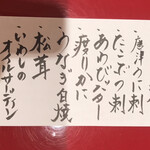 唐津うに刺
たこぶつ刺
あわびバター
渡りかに
うなぎ白焼
松茸
いわしの
オイルサーディン